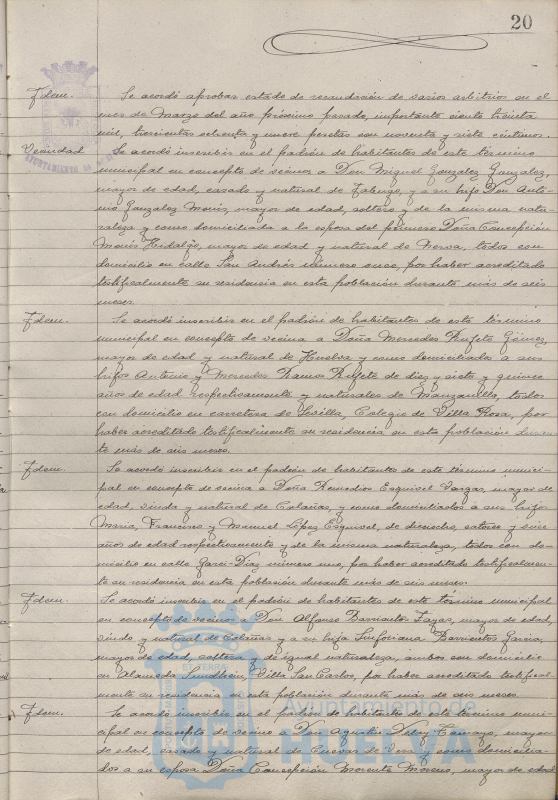 20
Idem. Se acordó aprobar estado de recaudación de varios arbitrios en el
mes de Marzo del año próximo pasado, importante ciento treinta
mil, trescientas ochenta y nueve pesetas con noventa y siete céntimos.
Vecindad Se acordó inscribir en el padrón de habitantes de este término
municipal en concepto de vecinos a Don Miguel Gonzalez Gonzalez,
mayor de edad, casado y natural de Jabugo, y a su hijo Don Anto-
nio Gonzalez Monís, mayor de edad, soltero y de la misma natu-
raleza y como domiciliada a la esposa del primero Doña Concepción
Monís Hidalgo, mayor de edad y natural de Nerva, todos con
domicilio en calle San Andrés número once, por haber acreditado
testificalmente su residencia en esta población durante más de seis
meses.
Idem. Se acordó inscribir en el padrón de habitantes de este término
municipal en concepto de vecina a Doña Mercedes Rufete Gómez,
mayor de edad y natural de Huelva y como domiciliados a sus
hijos Antonio y Mercedes Ramos Rufete de diez y siete y quince
años de edad respectivamente y naturales de Manzanilla, todos
con domicilio en carretera de Sevilla, Colegio de Villa Rosa, por
haber acreditado testificalmente su residencia en esta población duran-
te más de seis meses.
Idem. Se acordó inscribir en el padrón de habitantes de este término munici-
pal en concepto de vecina a Doña Remedios Esquivel Vargas, mayor de
edad, viuda y natural de Calañas, y como domiciliados a sus hijos
Maria, Francisco y Manuel López Esquivel, de dieciocho, catorce y once
años de edad respectivamente y de la misma naturaleza, todos con do-
micilio en calle Garci-Díaz número uno, por haber acreditado testificalmen-
te su residencia en esta población durante más de seis meses.
Idem. Se acordó inscribir en el padrón de habitantes de este término municipal
en concepto de vecinos a Don Alfonso Barriento Fayas, mayor de edad,
viudo y natural de Calañas y a su hija Sinforiana Barrientos Garcia,
mayor de edad, soltera y de igual naturaleza, ambos con domicilio
en Alameda Sundheim, Villa San Carlos, por haber acreditado testifical-
mente su residencia en esta población durante más de seis meses.
Idem. Se acordó inscribir en el padrón de habitantes de este término muni-
cipal en concepto de vecino a Don Agustin Tamayo, mayor
de edad, casado y natural de Cuevas de Vera y como domicilia-
da a su esposa Doña Concepción Morente Moreno, mayor de edad
Ayuntamiento de
HUELVA